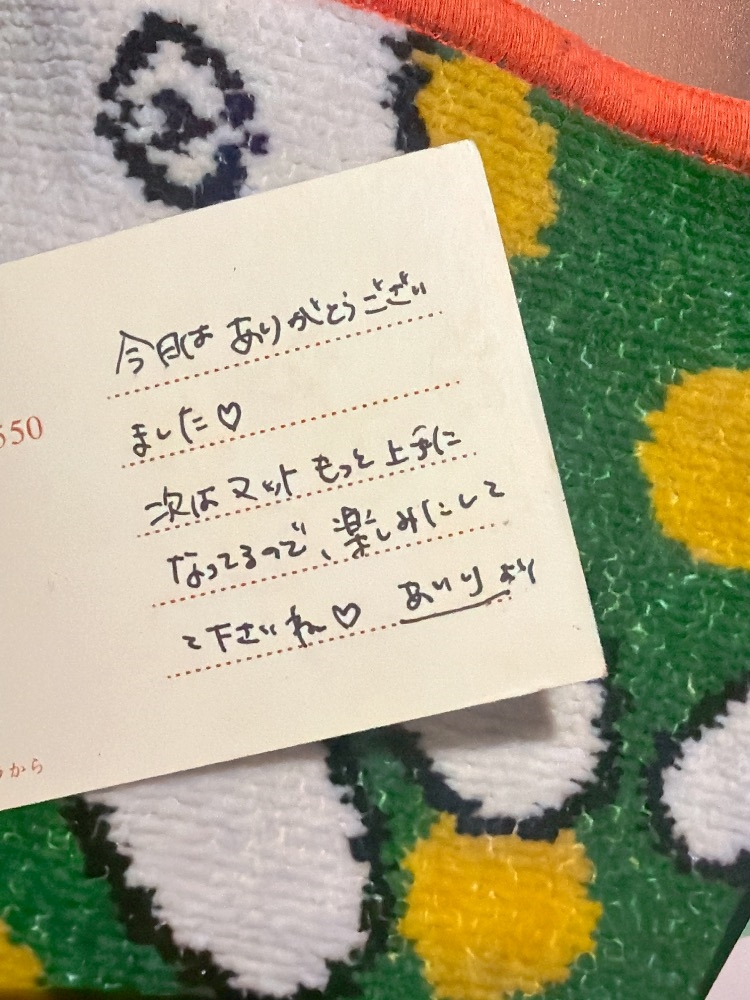 今日は ありがとうござい
ました♡
次は マット もっと 上手に
なってるので、楽しみにしてて
下さいね♡ あいりより
550
から